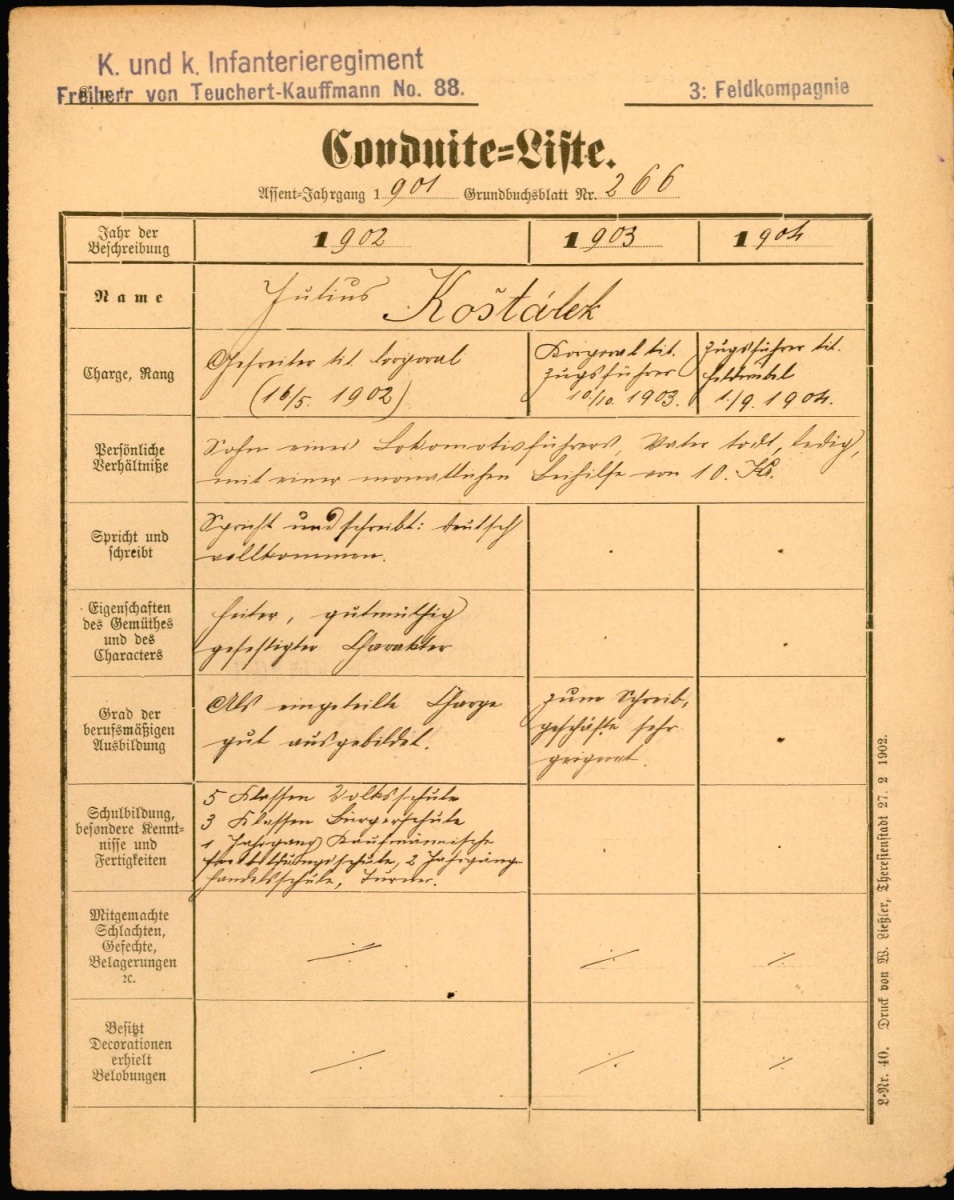 K. und k. Infanterieregiment
Freiherr von Teuchert-Kauffmann No. 88.
3: Feldkompagnie
Conduite=Liste.
Assent-Jahrgang 1901 Grundbuchsblatt Nr. 266
Jahr der Beschreibung
1902
1903
1904
Name
Julius Koštálek
Charge, Rang
Gefreiter tit. Corporal
(16/5. 1902)
Korporal tit.
Zugsführer
10/10. 1903.
Zugsführer tit.
Feldwebel
1./9. 1904.
Persönliche Verhältniße
Sohn eines Lokomotivführers, Vater todt, ledig,
mit einer monatlichen Beihilfe von 10. K.
Spricht und schreibt
Spricht und schreibt: deutsch
vollkommen.
Eigenschaften
des Gemüthes
und des
Characters
heiter, gutmüthig
gefestigter Charakter
Grad der
berufsmäßigen
Ausbildung
Als eingeteilte Charge
gut ausgebildet.
Zum Schreib-
geschäfte sehr
geeignet.
Schulbildung,
besondere Kennt-
nisse und
Fertigkeiten
5 Klassen Volksschule
3 Klassen Bürgerschule
1 Jahrgang Kaufmännische
Fortbildungsschule, 2 Jahrgänge
Handelsschule, Turner.
Mitgemachte
Schlachten,
Gefechte,
Belagerungen
ꝛc.
⁒
⁒
⁒
Besitzt
Decorationen
erhielt
Belobungen
⁒
⁒
⁒
L-Nr. 40. Druck von W. Ließler, Theresienstadt 27. 2 1902.